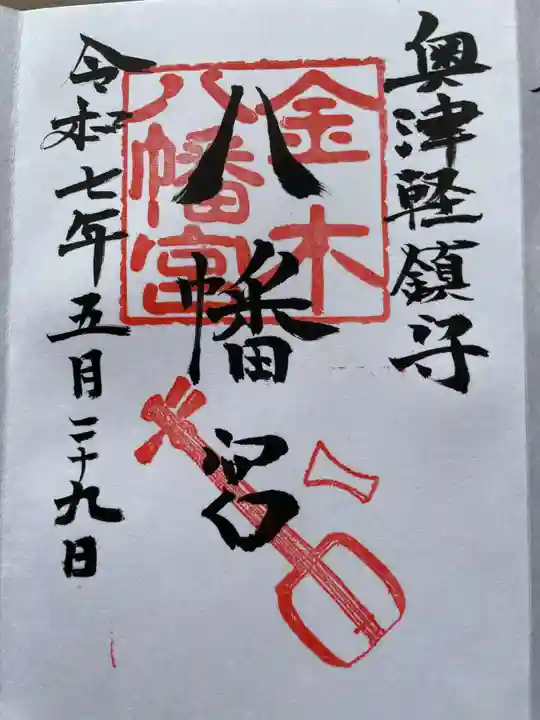 奥津軽鎮守
金木
八幡宮
八幡宮
令和七年五月二十九日